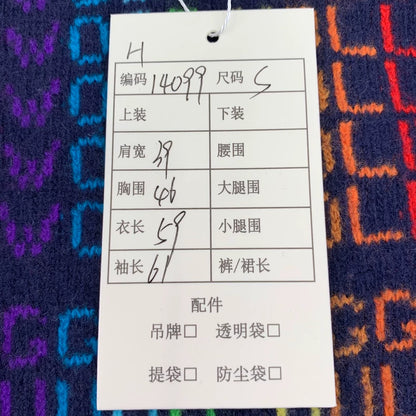 H
编码 14099 尺码 S
上装 下装
肩宽 39 腰围
胸围 46 大腿围
衣长 59 小腿围
袖长 61 裤/裙长
配件
吊牌□ 透明袋□
提袋□ 防尘袋□